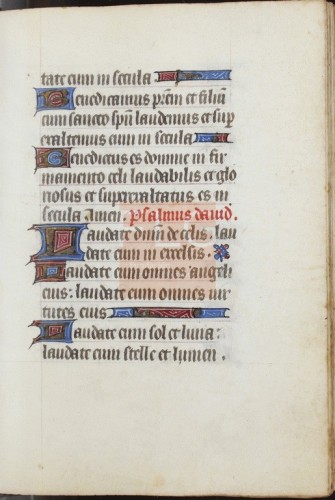 tate eum in secula
Benedicamus prem et filiu
cum sancto spu laudemus et sup
exaltemus eum in secula
Benedictus es domine in fir
mamento celi laudabilis et glo
riosus et superexaltatus es in
secula Amen. Psalmus david.
Laudate dnm de celis. lau
date eum in excelsis.
Laudate eum omnes angeli
eius: laudate eum omnes vir
tutes eius
Laudate eum sol et luna:
laudate eum stelle et lumen.